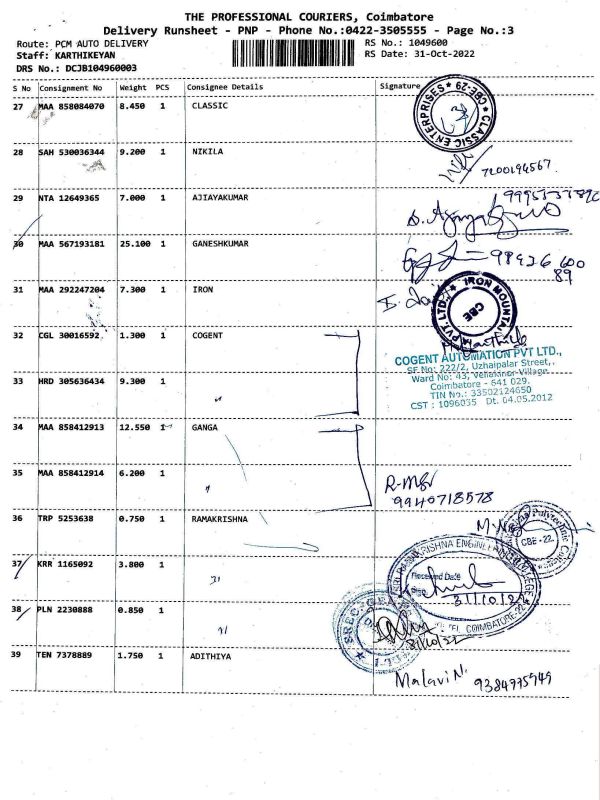 THE PROFESSIONAL COURIERS, Coimbatore
Delivery Runsheet - PNP - Phone No.:0422-3505555 - Page No.:3
Route: PCM AUTO DELIVERY RS No.: 1049600
Staff: KARTHIKEYAN RS Date: 31-Oct-2022
DRS No.: DCJB104960003
S No Consignment No Weight PCS Consignee Details Signature
27 MAA 858084070 8.450 1 CLASSIC
CLASSIC ENTERPRISES * CBE-29 *
28 SAH 530036344 9.200 1 NIKILA
7200194567
29 NTA 12649365 7.000 1 AJIAYAKUMAR
30 MAA 567193181 25.100 1 GANESHKUMAR
98426 600
89
31 MAA 292247204 7.300 1 IRON
IRON MOUNTAIN PVT LTD. CBE
32 CGL 30016592 1.300 1 COGENT
COGENT AUTOMATION PVT LTD.,
SF No: 222/2, Uzhaipalar Street,
Ward No: 43, Vellakinar Village
Coimbatore - 641 029.
TIN No.: 33502124650
CST : 1096035 Dt. 04.05.2012
33 HRD 305636434 9.300 1 "
34 MAA 858412913 12.550 1 GANGA
35 MAA 858412914 6.200 1 "
9940718578
36 TRP 5253638 0.750 1 RAMAKRISHNA
Polytechnic CBE-22
37 KRR 1165092 3.800 1 "
RAMAKRISHNA ENGINEERING COLLEGE
Received Date
31/10/22
COIMBATORE-22
38 PLN 2230888 0.850 1 "
SREC
31/10/22
39 TEN 7378889 1.750 1 ADITHIYA
Malavi N. 9384775949